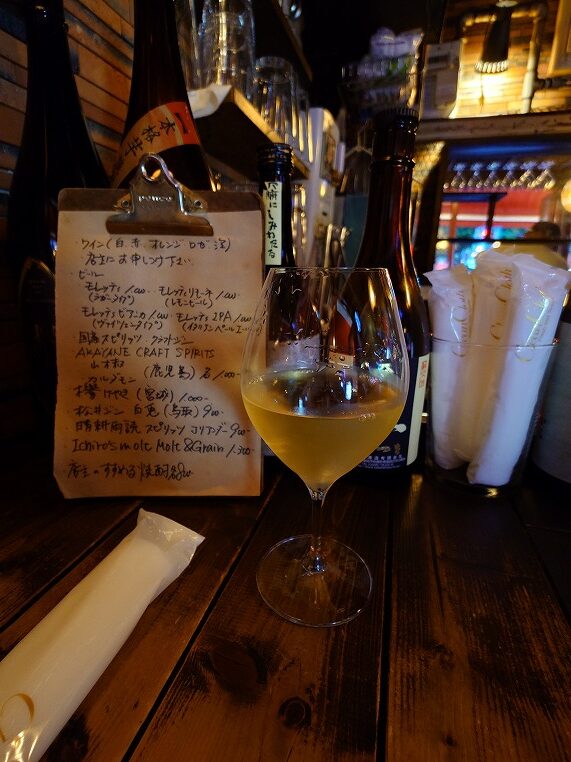 本格芋
ワイン(白,赤,オレンジ ロゼ 泡)
店主にお申しつけ下さい。
・ビール
モレッティ/1,000 モレッティリモーネ/1,000
(ラガータイプ) (レモンビール)
モレッティビアンカ/1,000 モレッティIPA/1,000
(ヴァイツェンタイプ) (インディアンペールエール)
・国産スピリッツ クラフトジン
AKAYANE CRAFT SPIRITS
山椒 (鹿児島)各/1,000-
カルダモン
欅 けやき(宮城)/1,000-
・松井ジン 白兎(鳥取)900-
・晴耕雨読 スピリッツ コリアンダー900-
Ichiro's molt Molt & Grain/1,300-
店主のすすめる焼酎各800-
六腑にしみわたる